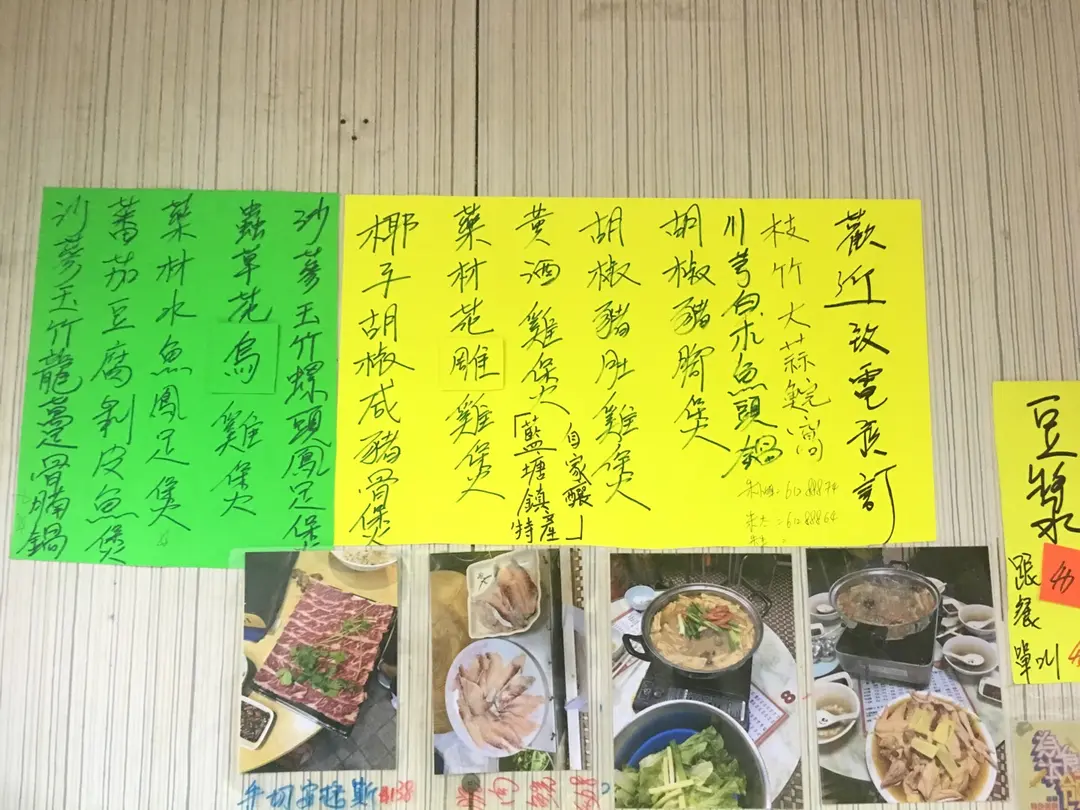 歡迎致電預訂
枝竹大蒜鯇窩
川芎白朮魚頭鍋
胡椒豬腳煲
胡椒豬肚雞煲
黃酒雞煲
自家釀
「藍塘鎮特產」
藥材花雕雞煲
椰子胡椒咸豬骨煲
沙蔘玉竹螺頭鳳足煲
蟲草花烏雞煲
藥材水魚鳳足煲
蕃茄豆腐剝皮魚煲
沙蔘玉竹龍躉骨腩鍋
豆漿
跟餐
單叫
斯$138
8